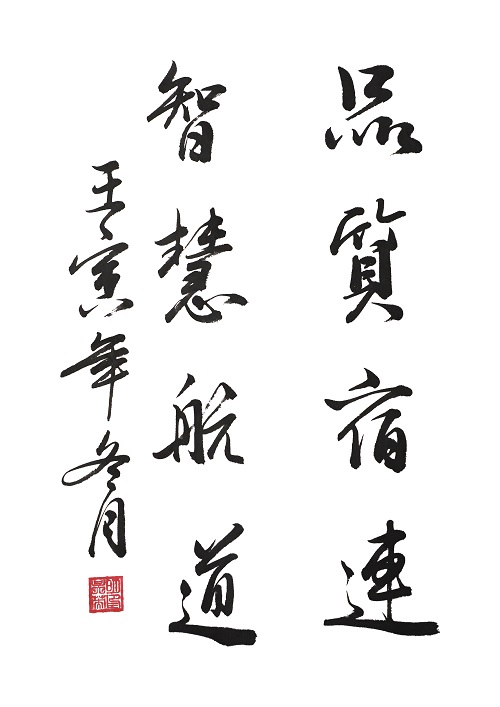 品質宿連
智慧航道
壬寅年冬月